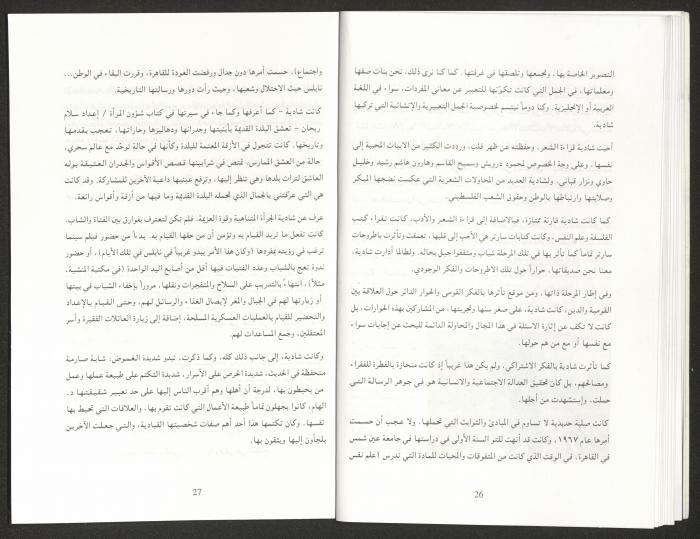 التصوير الخاصة بها، وتجمعها وتلصقها في غرفتها. كما كنا نرى ذلك، نحن بنات صفها
ومعلماتها، في الجمل التي كانت تكوّنها للتعبير عن معاني المفردات، سواء في اللغة
العربية أو الإنجليزية. وكنا دوماً نبتسم لخصوصية الجمل التعبيرية والإنشائية التي تركبها
شادية.
أحبت شادية قراءة الشعر، وحفظته عن ظهر قلب، ورددت الكثير من الابيات المحببة إلى
نفسها، وعلى وجه الخصوص لمحمود درويش وسميح القاسم وهارون هاشم رشيد وخليل
حاوي ونزار قباني. ولشادية العديد من المحاولات الشعرية التي عكست نضجها المبكر
وصلابتها وارتباطها بالوطن وحقوق الشعب الفلسطيني.
كما كانت شادية قارئة ممتازة، فبالاضافة إلى قراءة الشعر والأدب، كانت تقراء كتب
الفلسفة وعلم النفس، وكانت كتابات سارتر هي الأحب إلى قلبها، تعمقت وتأثرت بأطروحات
سارتر تماماً كما تأثر بها في تلك المرحلة شباب ومثقفوا جيل بحاله. ولطالما أدارت شادية،
معنا نحن صديقاتها، حواراً حول تلك الاطروحات والفكر الوجودي.
وفي إطار المرحلة ذاتها، ومن موقع تأثرها بالفكر القومي والحوار الدائر حول العلاقة بين
القومية والدين، كانت شادية، على صغر سنها وتجربتها، من المشاركين بهذه الحوارات، بل
كانت لا تكف عن إثارة الاسئلة في هذا المجال والمحاولة الدائمة للبحث عن إجابات سواء
مع نفسها أو مع من هم حولها.
كما تأثرت شادية بالفكر الاشتراكي، ولم يكن هذا غريباً إذ كانت منحازة بالفطرة للفقراء
ومصالحهم، بل كان تحقيق العدالة الاجتماعية والانسانية هو في جوهر الرسالة التي
حملت، وإستشهدت من أجلها.
كانت صلبة حديدية لا تساوم في المبادئ والثوابت التي تحملها. ولا عجب أن حسمت
أمرها عام ١٩٦٧، وكانت قد أنهت للتو السنة الأولى في دراستها في جامعة عين شمس
في القاهرة، في الوقت الذي كانت من المتفوقات والمحبات للمادة التي تدرس (علم نفس
26
واجتماع)، حسمت أمرها دون جدال ورفضت العودة للقاهرة، وقررت البقاء في الوطن...
نابلس حيث الاحتلال وشعبها، وحيث رأت دورها ورسالتها التاريخية.
كانت شادية – كما أعرفها وكما جاء في سيرتها في كتاب شؤون المرأة / إعداد سلام
ريحان – تعشق البلدة القديمة بأبنيتها وجدرانها ودهاليزها وحاراتها، تعجب بقدمها
وتاريخها. كانت تتجول في الأزقة المعتمة للبلدة وكأنها في حالة توحّد مع عالم سحري،
حالة من العشق الممارس، تمتص في شرايينها قصص الأقواس والجدران العشيقة بوله
العاشق لتراث بلدها وهي تنظر إليها، وترفع عينيها داعية الآخرين للمشاركة. وقد كانت
هي التي عرفتني بالجمال الذي تحمله البلدة القديمة وما فيها من أزقة وأقواس رائعة.
عرف عن شادية الجرأة المتناهية وقوة العزيمة. فلم تكن لتعترف بفوارق بين الفتاة والشاب.
كانت تفعل ما تريد القيام به وتؤمن أن من حقها القيام به. بدءاً من حضور فيلم سينما
ترغب في رؤيته بمفردها (وكان هذا الأمر يبدو غريباً في نابلس في تلك الأيام)، أو حضور
ندوة تعج بالشباب وعدد الفتيات فيها أقل من أصابع اليد الواحدة (في مكتبة المنشية،
مثلاً)، انتهاءً بالتدريب على السلاح والمتفجرات ونقلها، مروراً بإخفاء الشباب في بيتها
أو زيارتها لهم في الجبال والمغر لإيصال الغذاء والرسائل لهم، وحتى القيام بالإعداد
والتحضير للقيام بالعمليات العسكرية المسلحة، إضافة إلى زيارة العائلات الفقيرة وأسر
المعتقلين، وجمع المساعدات لهم.
وكانت شادية، إلى جانب ذلك كله، وكما ذكرت، تبدو شديدة الغموض: شابة صارمة
متحفظة في الحديث، شديدة الحرص على الأسرار، شديدة التكتم على طبيعة عملها وعمل
من يحيطون بها، لدرجة أن أهلها وهم أقرب الناس إليها على حد تعبير شقيقتها د.
الهام، كانوا يجهلون تماماً طبيعة الأعمال التي كانت تقوم بها، والعلاقات التي تحيط بها
نفسها. وكان تكتمها هذا أحد أهم صفات شخصيتها القيادية، والتي جعلت الآخرين
يلجأون إليها ويثقون بها.
27